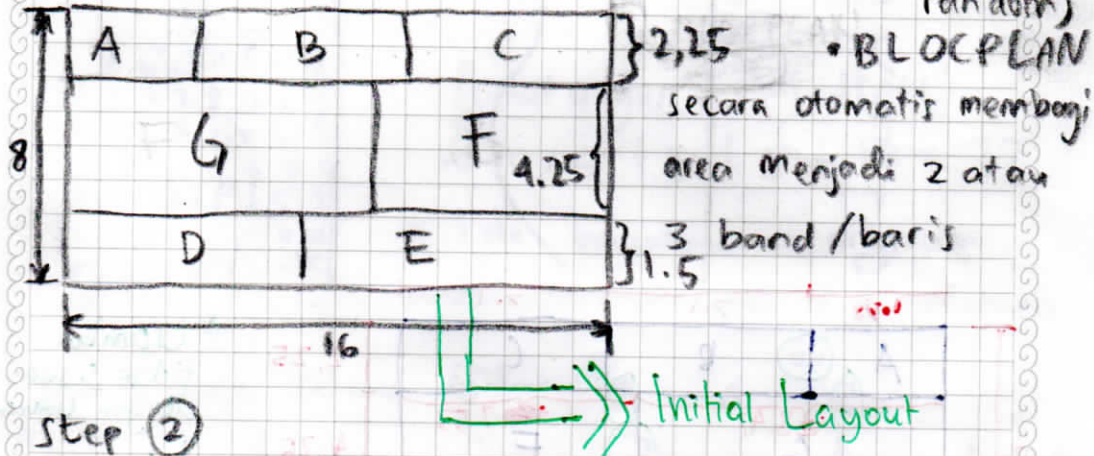 random)
A B C } 2,25 • BLOCPLAN
secara otomatis membagi
G F 4.25 {
8
area menjadi 2 atau
3 band / baris
D E } 1.5
16
Initial Layout
step 2